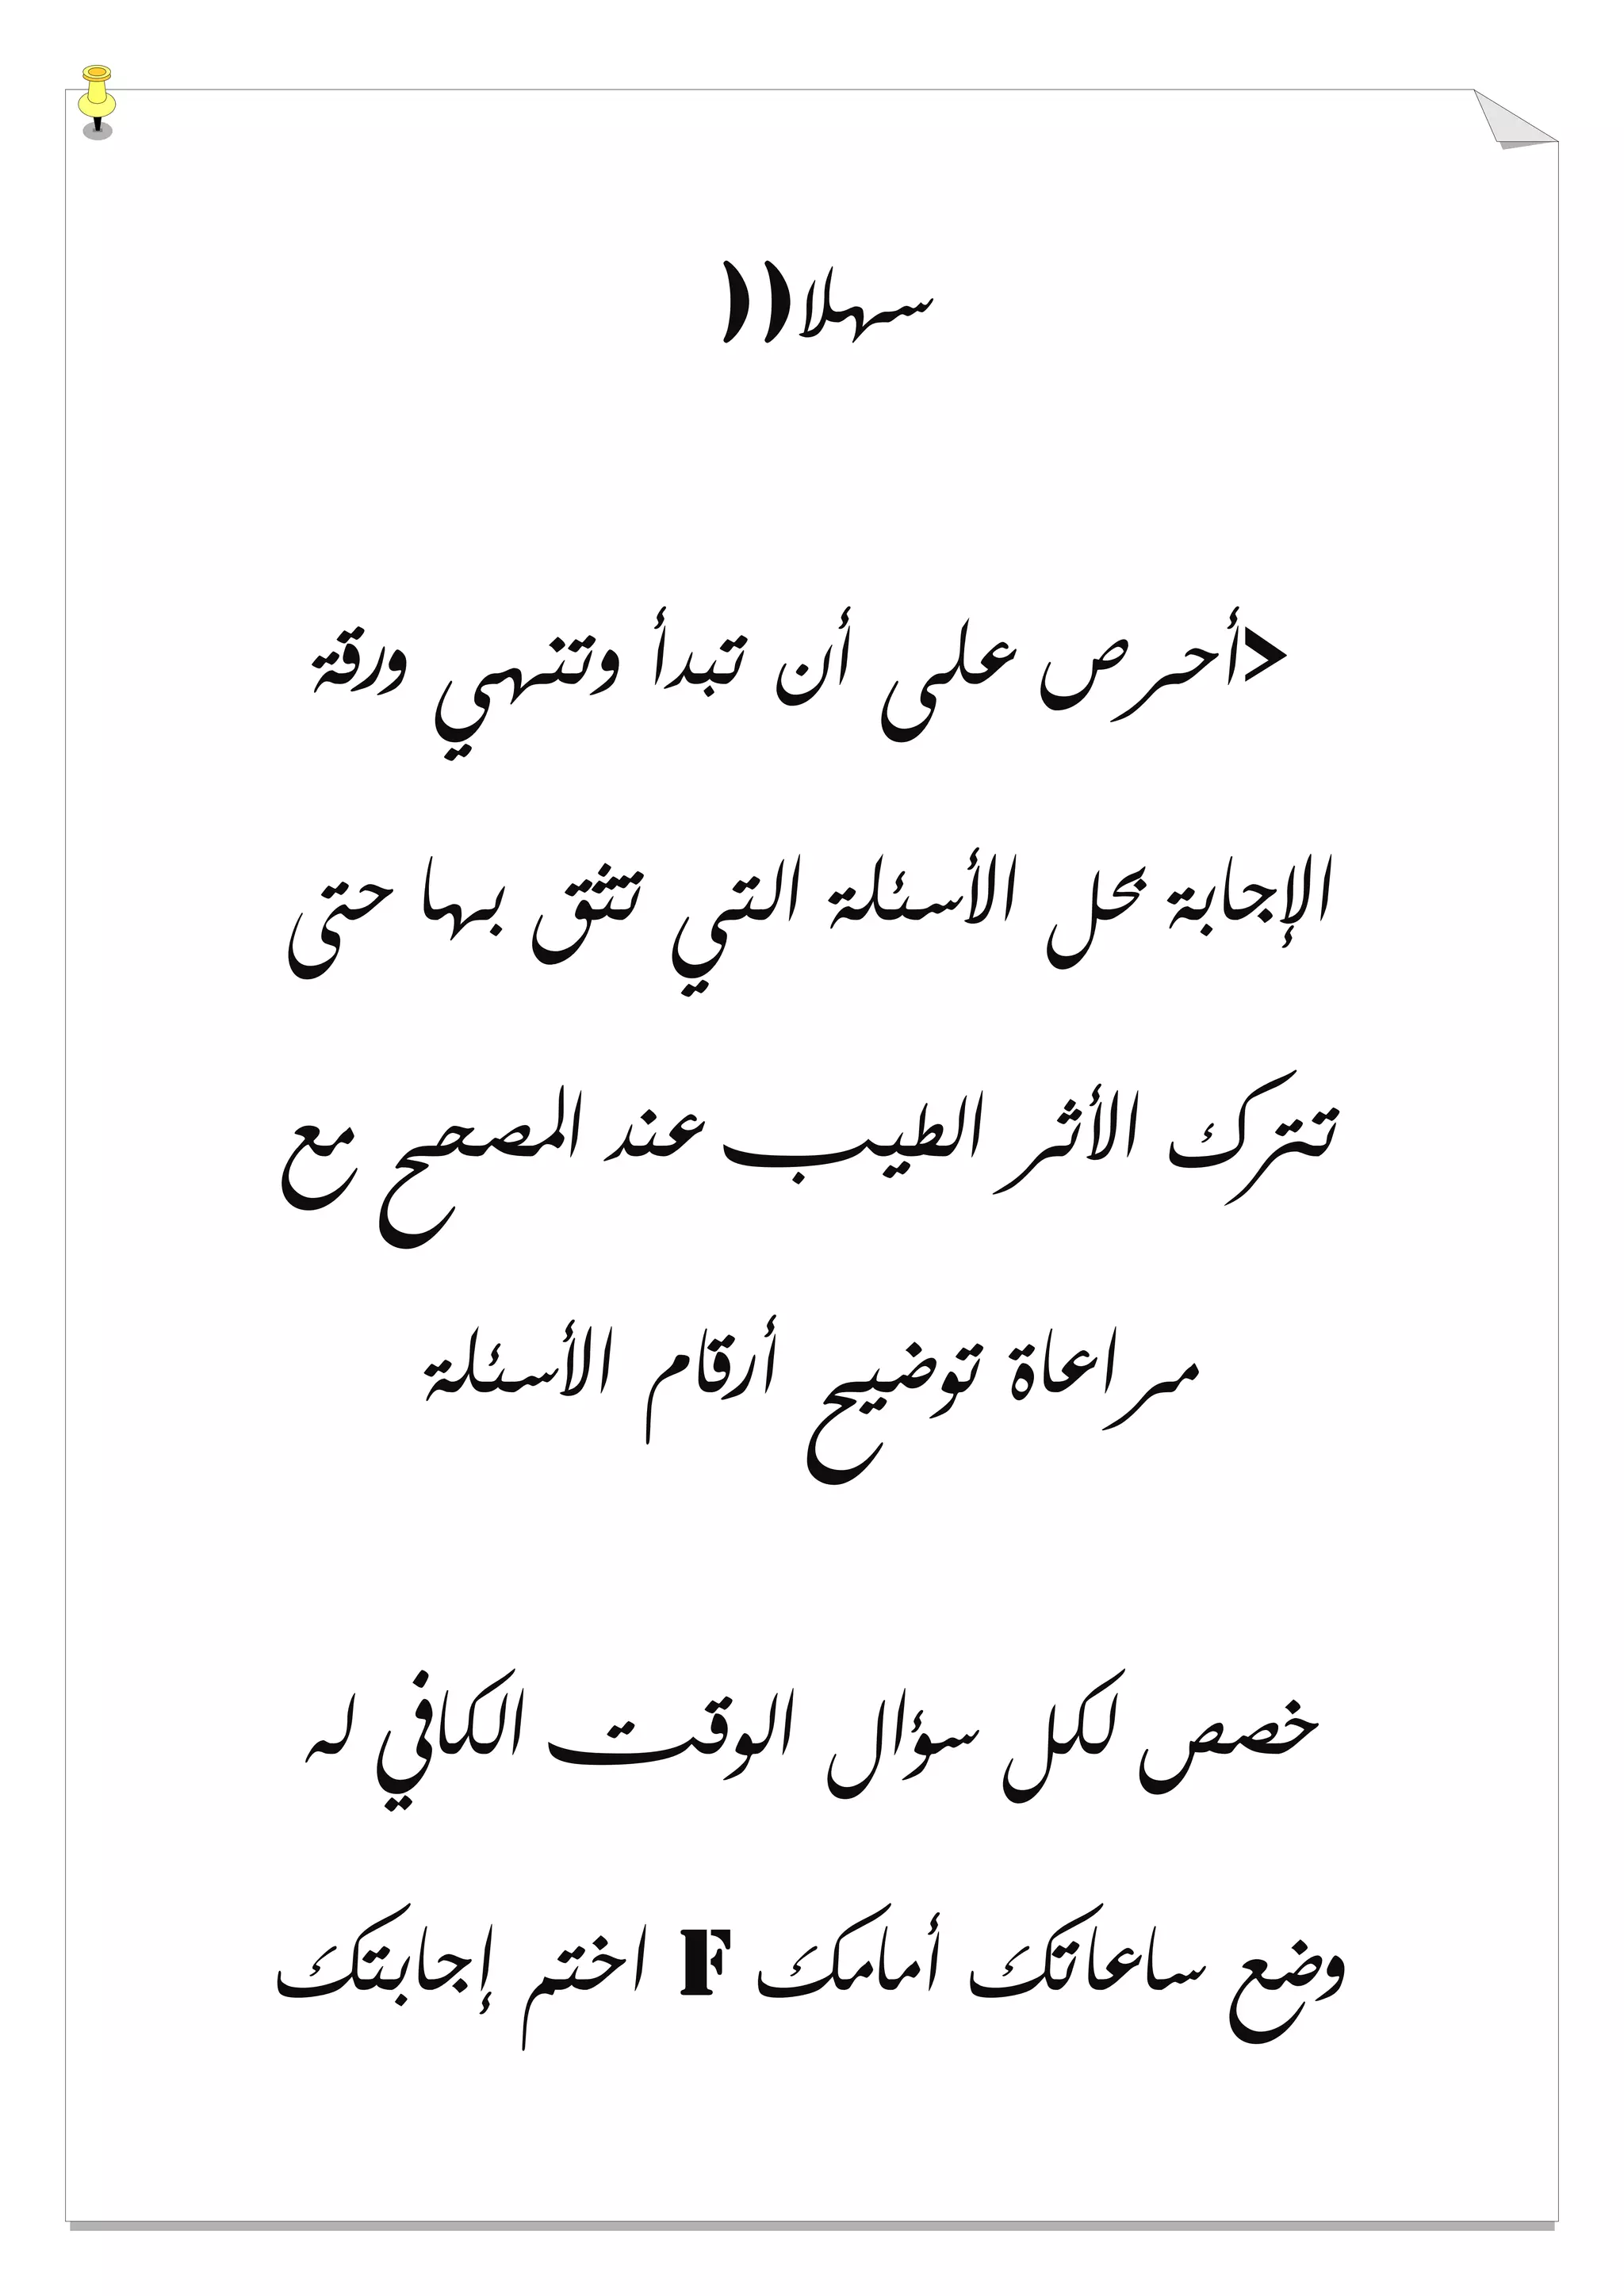 سهلا ((
➤أحرص على أن تبدأ وتنتهي ورقة
الإجابة بحل الأسئلة التي تثق بها حتى
تترك الأثر الطيب عند المصحح مع
مراعاة توضيح أرقام الأسئلة
خصص لكل سؤال الوقت الكافي له
وضع ساعتك أمامك F اختم إجابتك